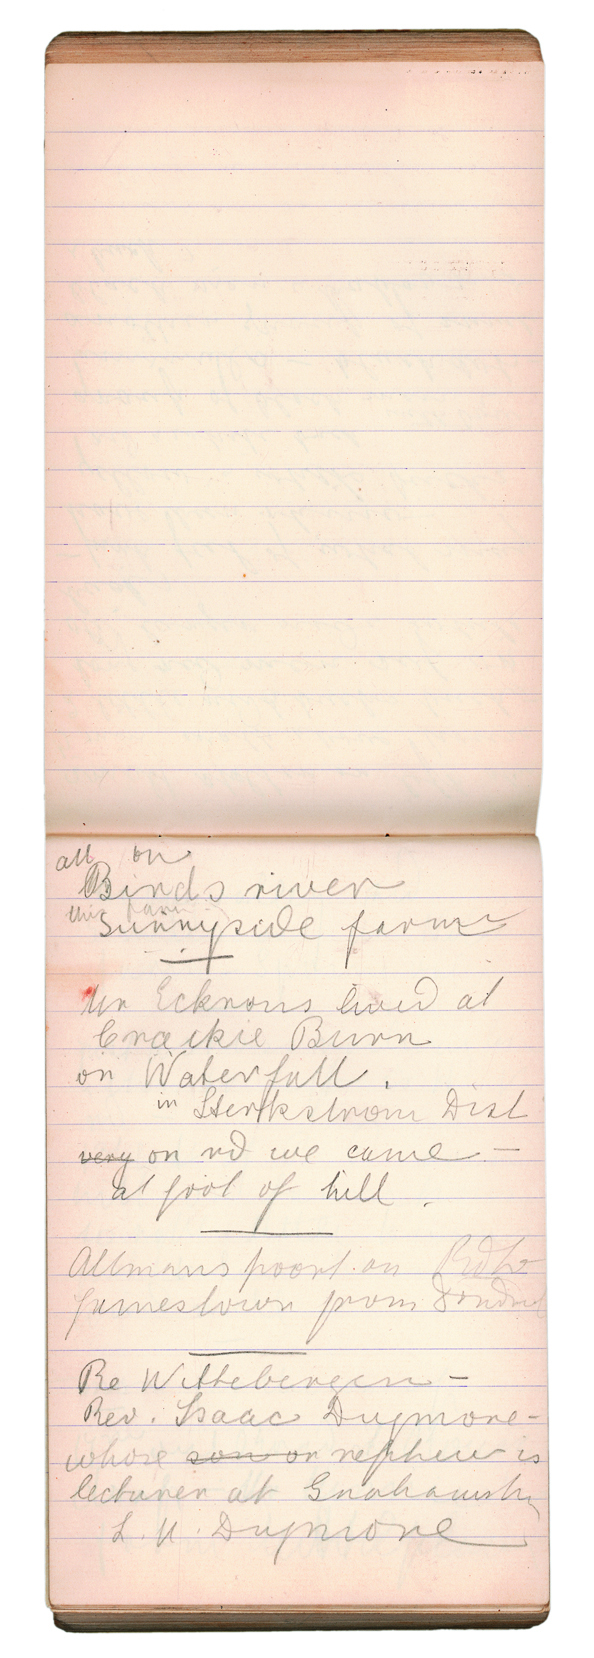 all on
Birds river
this farm
Sunnyside farm
Mr Ecknous lived at
Crackie Burn
on Waterfall.
in Sterkstrom Dist
very on rd we came —
at foot of hill.
Allmans poort on Rd to
Jamestown from Dordr
Re Wittebergen —
Rev. Isaac Dugmore -
whose son or nephew is
lecturer at Grahamstn
Dugmore